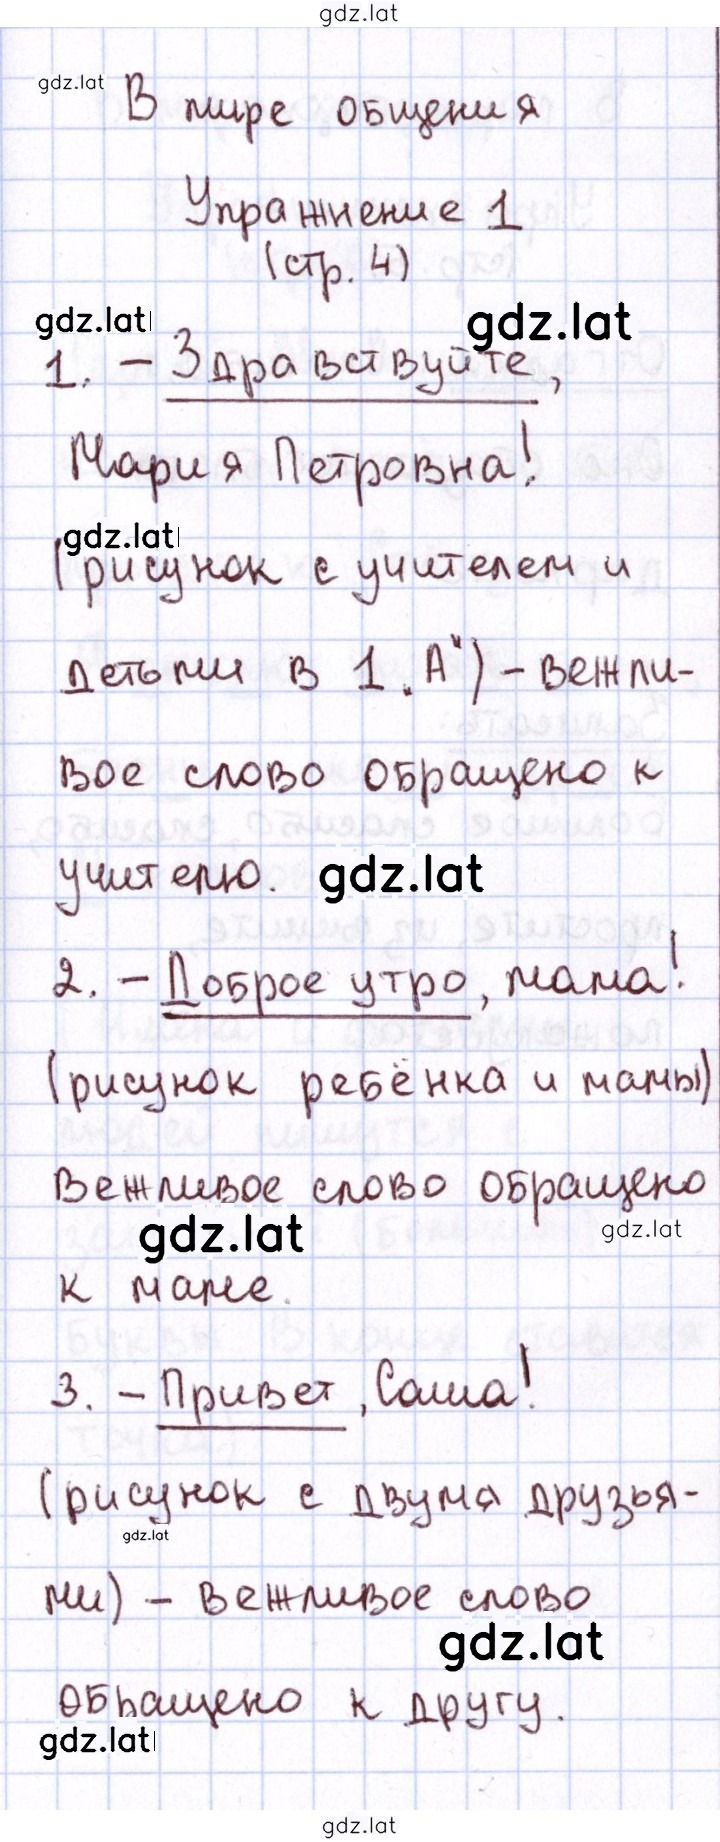 gdz.lat
gdz.lat
В мире общения
Упражнение 1
(стр. 4)
gdz.lat
gdz.lat
1. – Здравствуйте,
Мария Петровна!
gdz.lat
(рисунок с учителем и
детьми в 1 „А") – вежли-
вое слово обращено к
учителю.
gdz.lat
2. – Доброе утро, мама!
(рисунок ребёнка и мамы)
вежливое слово обращено
gdz.lat
gdz.lat
к маме.
3. – Привет, Саша!
(рисунок с двумя друзья-
gdz.lat
ми) – вежливое слово
gdz.lat
обращено к другу.
gdz.lat
gdz.lat